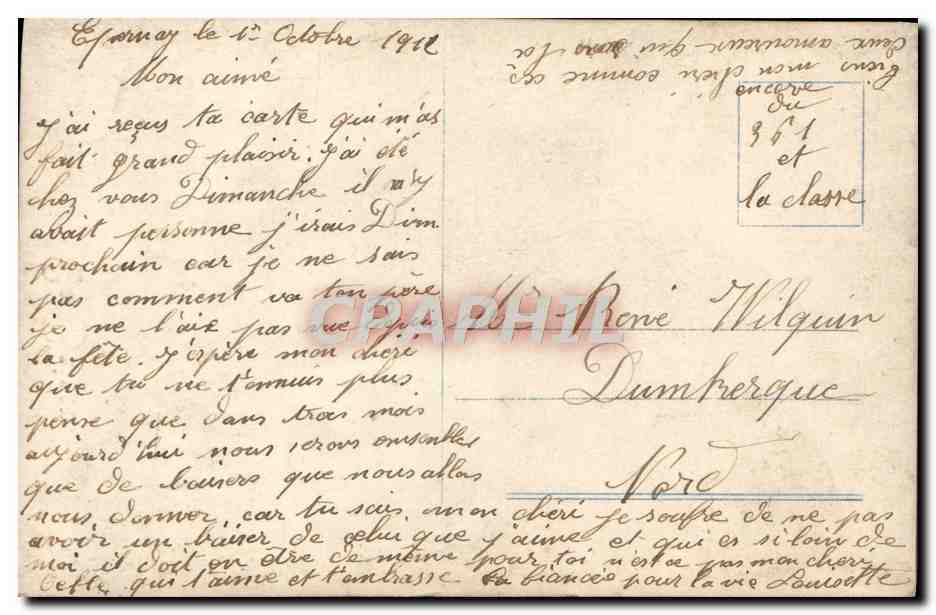 Epernay le 1er Octobre 1912
Mon aimé
J'ai reçus ta carte qui m'as
fait grand plaisir. J'ai été
chez vous Dimanche il n'y
avait personne j'irais Dim
prochain car je ne sais
pas comment va ton père
je ne l'aie pas vue depuis
la fête. J'espère mon chéri
que tu ne t'ennuis plus
pense que dans trois mois
aujourd'hui nous serons ensembles
que de baisers que nous allons
nous donner car tu sais mon chéri je souffre de ne pas
avoir un baiser de celui que j'aime et qui es si loin de
moi il doit en être de même pour toi n'est ce pas mon chéri
Cette qui t'aime et t'embrasse ta fiancée pour la vie
Tiens mon chéri comme ces
deux amoureux qui sont la
encore
du
361
et
la classe
Mr René Wilquin
Dunkerque
Nord
CPAPHIL